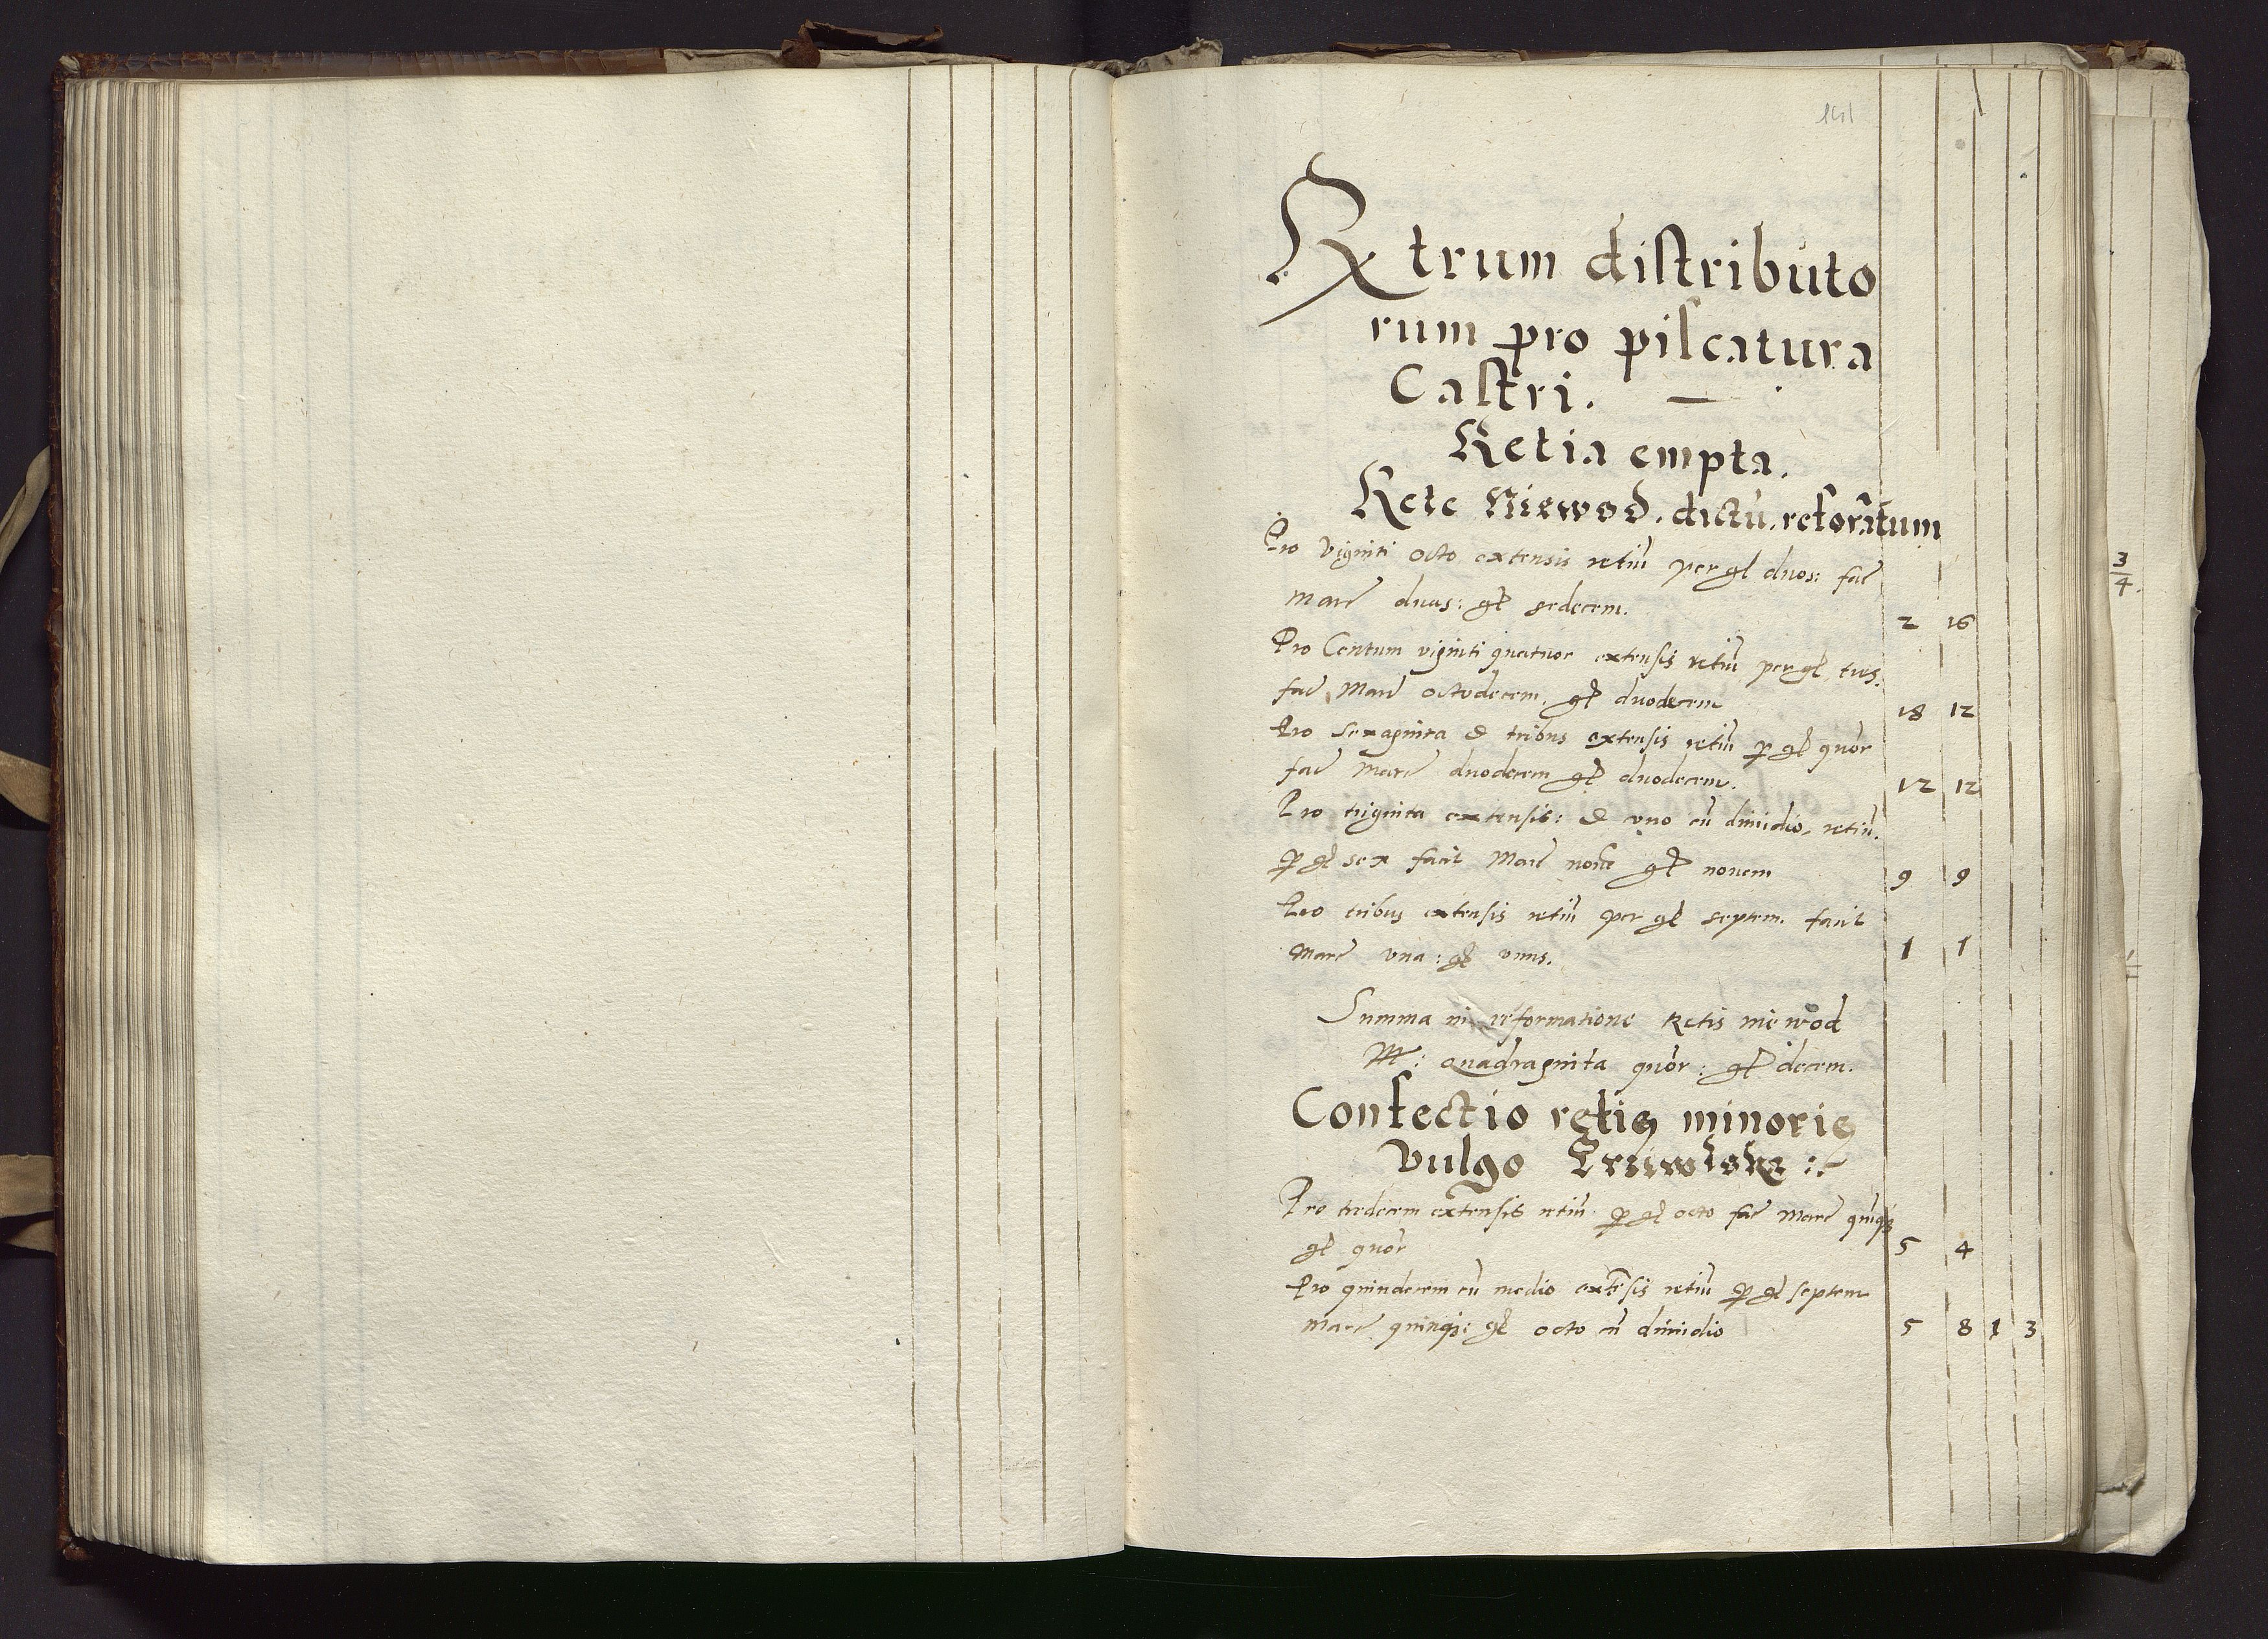 141
Rxtrum distributo
rum pro piscatura
Castri. —
Retia empta.
Rete Niewod. dictū. reformatum
Pro Viginti octo extensis retiū per gl duos: fac̄
marc̄ duas: gl sedecem. 2 16
Pro Centum viginti quatuor extensis retiū per gl tres.
fac̄ Marc̄ octodecem, gl duodecem 18 12
Pro sexaginta & tribus extensis retiū p gl quor
fac̄ Marc̄ duodecem gl duodecem. 12 12
Pro triginta extensis: & vno cū dimidio, retiū.
p gl sex facit Marc̄ nouē gl nouem 9 9
Pro tribus extensis retiū per gl septem. facit
Marc̄ vna: gl vnus. 1 1
Summa in reformatione Retis niewod
M: quadraginta quor: gl decem.
Confectio retis minoris
Vulgo
Pro tredecem extensis retiū p gl octo fac̄ Marc̄ quinqȝ
gl quor 5 4
Pro quindecem cū medio extēsis retiū p gl septem
Marc̄ quinqȝ: gl octo cū dimidio 5 8 1 3
3
4